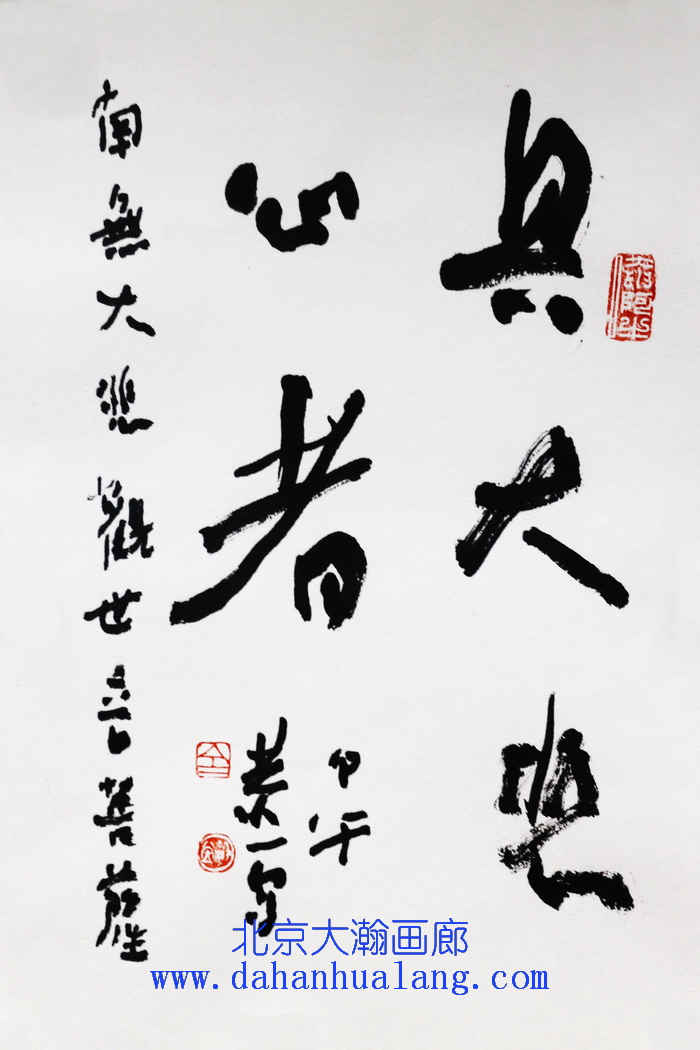 具大悲
心者
甲午
恭一写
南無大悲觀世音菩薩
北京大瀚画廊
www.dahanhualang.com